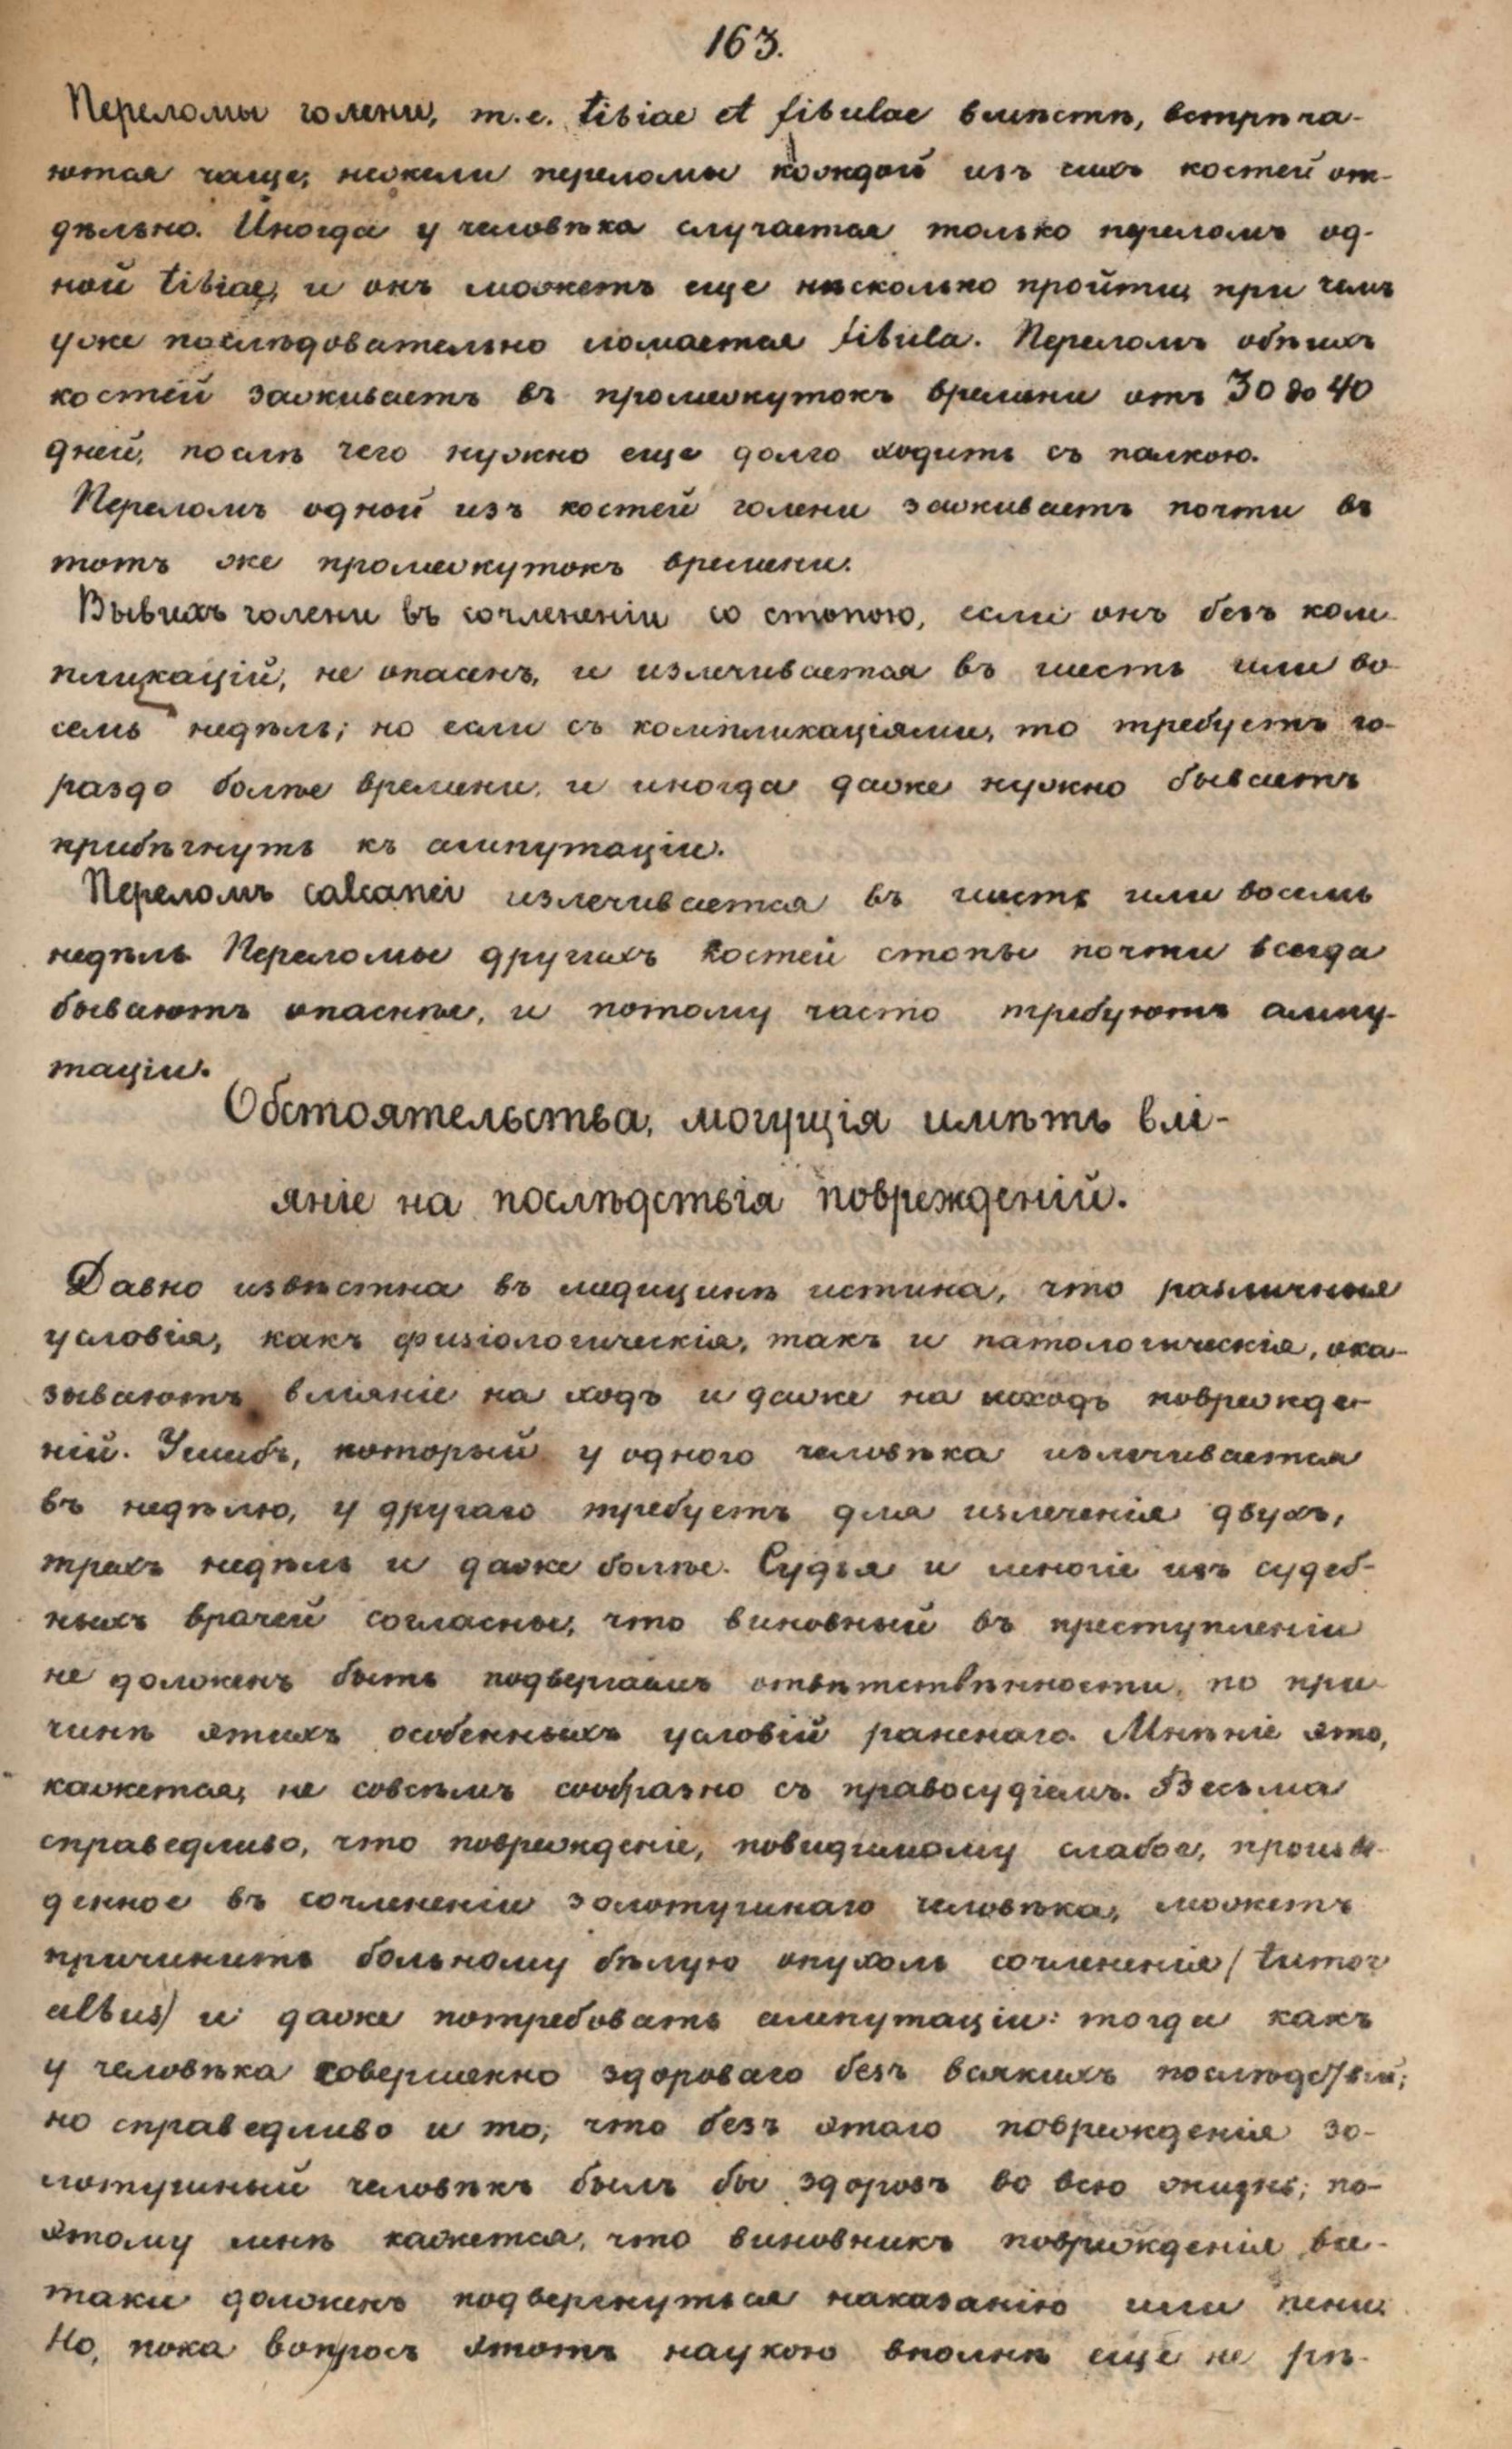 163.
Переломы голени, т.е. tibiae et fibulae вмѣстѣ, встрѣча-
ются чаще, нежели переломы каждой изъ сихъ костей от-
дѣльно. Иногда у человѣка случается только переломъ од-
ной tibiae, и онъ можетъ еще нѣсколько пройти, при чемъ
уже послѣдовательно ломается fibula. Переломъ обѣихъ
костей заживаетъ въ промежутокъ времени отъ 30 до 40
дней, послѣ чего нужно еще долго ходить съ палкою.
Переломъ одной изъ костей голени заживаетъ почти въ
тотъ же промежутокъ времени.
Вывихъ голени въ сочлененіи со стопою, если онъ безъ ком-
пликацій, не опасенъ, и излечивается въ шесть или во
семь недѣль; но если съ компликаціями, то требуетъ го-
раздо болѣе времени, и иногда даже нужно бываетъ
прибѣгнуть къ ампутаціи.
Переломъ calcanei излечивается въ шесть или восемь
недѣль. Переломы другихъ костей стопы почти всегда
бываютъ опаснѣе, и потому часто требуютъ ампу-
таціи.
Обстоятельства, могущія имѣть влі-
яніе на послѣдствія поврежденій.
Давно извѣстна въ медицинѣ истина, что различныя
условія, какъ физіологическія, такъ и патологическія, ока-
зываютъ вліяніе на ходъ и даже на исходъ поврежде-
ній. Ушибъ, который у одного человѣка излечивается
въ недѣлю, у другаго требуетъ для излеченія двухъ,
трехъ недѣль и даже болѣе. Судья и многіе изъ судеб-
ныхъ врачей согласны, что виновный въ преступленіи
не долженъ быть подвергаемъ отвѣтствѣнности, по при-
чинѣ этихъ особенныхъ условій раненаго. Мнѣніе это,
кажется, не совсѣмъ сообразно съ правосудіемъ. Весьма
справедливо, что поврежденіе, повидимому слабое, произве-
денное въ сочлененіи золотушнаго человѣка, можетъ
причинить больному бѣлую опухоль сочлененія (tumor
albus) и даже потребовать ампутаціи: тогда какъ
у человѣка совершенно здороваго безъ всякихъ послѣдствій;
но справедливо и то, что безъ этаго поврежденія зо-
лотушный человѣкъ былъ бы здоровъ во всю жизнь; по-
этому мнѣ кажется, что виновникъ поврежденія все-
таки долженъ подвергнуться наказанію или пени.
Но, пока вопросъ этотъ наукою вполнѣ еще не рѣ-